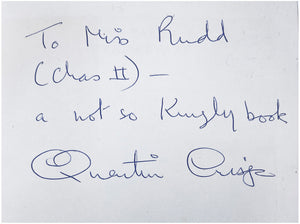 To Miss Rudd
(Chas II) —
a not so Kingly book
Quentin Crisp